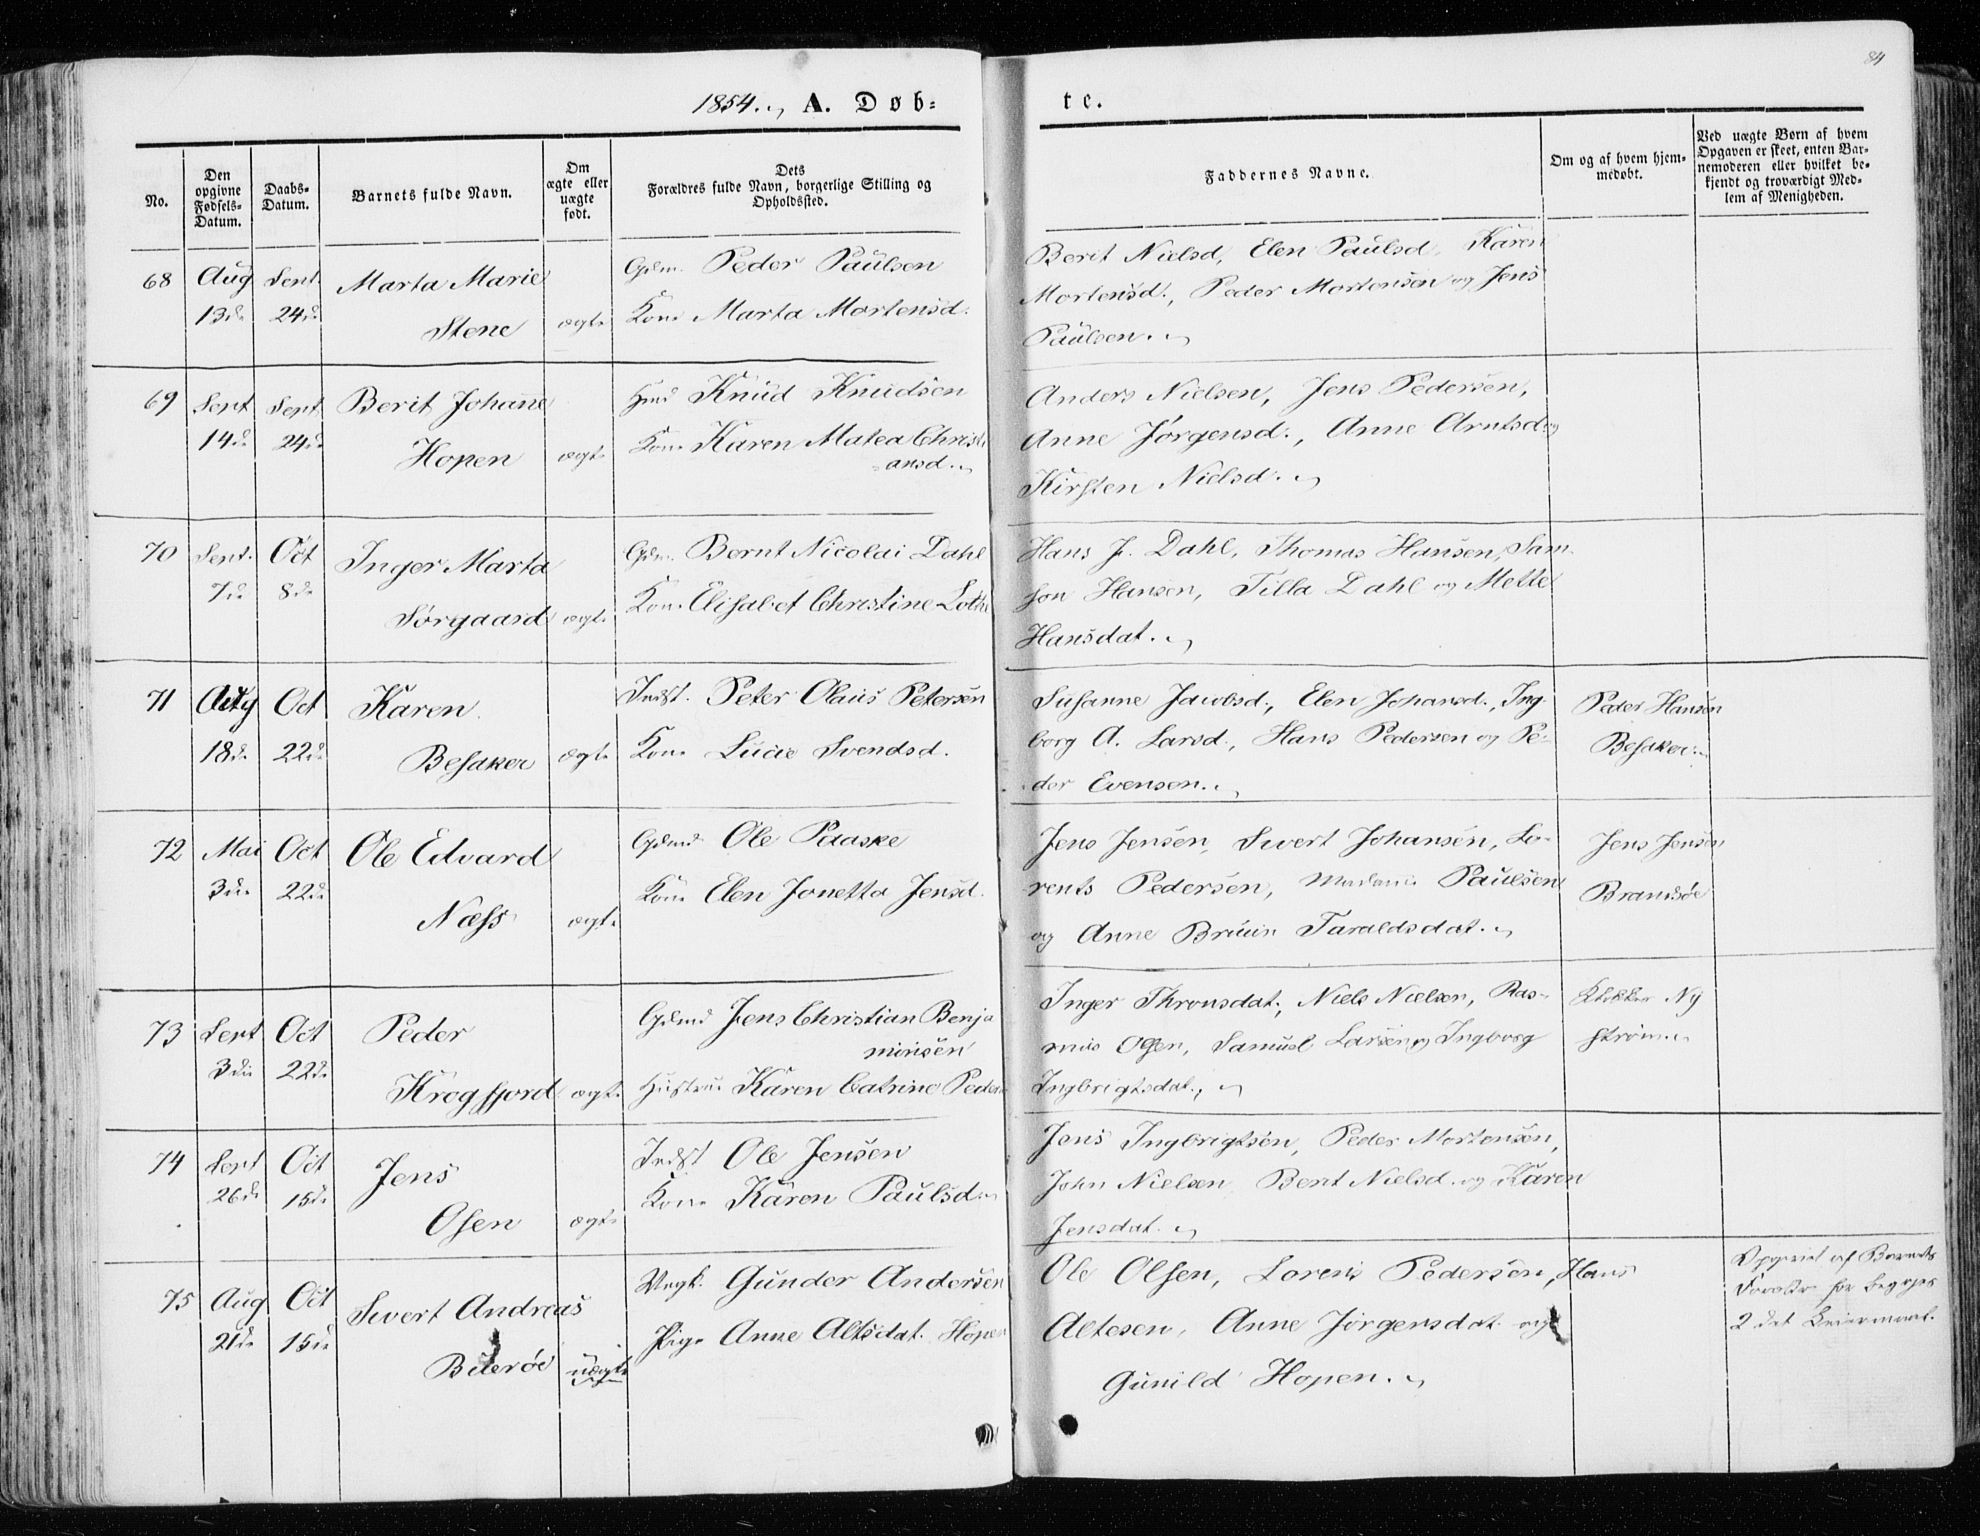 84
1854. A. Døb-
te.
No.
Den opgivne Fødsels-Datum.
Daabs-Datum.
Barnets fulde Navn.
Om ægte eller uægte født.
Dets
Forældres fulde Navn, borgerlige Stilling og
Opholdssted.
Faddernes Navne.
Om og af hvem hjem-
medøbt.
Ved uægte Børn af hvem
Opgaven er skeet, enten Bar-
nemoderen eller hvilket be-
kjendt og troværdigt Med-
lem af Menigheden.
68 Aug Sept. Marta Marie Gdm. Peder Paulsen
13de 24de Stene ægte Kone Marta Mortensd.
Berit Nielsd, Elen Paulsd, Karen
Mortensd., Peder Mortensen og Jens
Paulsen.
69 Sept Sept Berit Johanne Hmd Knud Knudsen
14de 24de Hopen ægte Kone Karen Matea Christi
ansd.
Anders Nielsen, Jens Pedersen,
Anne Jørgensd., Anne Arntsd og
Kirsten Nielsd.
70 Sept. Oct Inger Marta Gdm. Bernt Nicolai Dahl
7de 8de Sørgaard ægte Kone Elisabet Christine Loth
Hans J. Dahl, Thomas Hansen, Sam-
son Hansen, Tilla Dahl og Mette
Hansdat.
71 Aug Oct Karen Indst. Peter Olaus Petersen
18de 22de Besaker ægte Kone Lucie Svendsd.
Susanne Jacobsd., Elen Johansd., Ing-
borg A. Larsd., Hans Pedersen og Pe-
der Evensen.
Peder Hansen
Besaker
72 Mai Oct Ole Edvard Gdmd Ole Paaske
3die 22de Næss ægte Kone Elen Jonetta Jensd.
Jens Jensen, Sivert Johansen, Lo-
rents Pedersen, Madame Paulsen
og Anne Bruun Taraldsdat.
Jens Jensen
Brandsøe
73 Sept Oct Peder Gdmd Jens Christian Benja
minsen
3die 22de Krogfjord ægte Hustrue Karen Catrine Peders
Inger Thronsdat., Niels Nielsen, Ras-
mus Olsen, Samuel Larsen og Ingborg
Ingbrigtsdat.,
Klokker Ny
strøm
74 Sept Oct Jens Indst Ole Jensen
26de 15de Osen ægte Kone Karen Paulsd.
Jens Ingbrigtsen, Peder Mortensen,
John Nielsen, Berit Nielsd. og Karen
Jensdat.
75 Aug Oct Sivert Andreas Ungk. Gunder Andersen
21de 15de Buerøe uægte Pige Anne Altsdat. Hopen
Ole Olsen, Lorens Pedersen, Hans
Altesen, Anne Jørgensdat og
Gunild Hopen.
Opgivet af Barnets
Forældre for begges
2det Leiermaal.